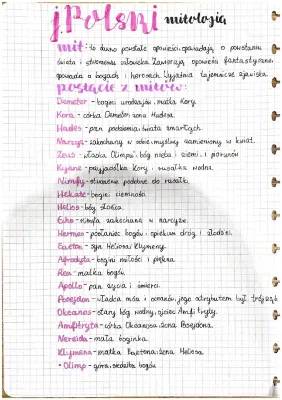 j.Polski mitologia
mit: to dawno powstałe opowieści opowiadają o powstaniu
świata i stworzeniu człowieka. Zawierają opowieści fantastyczne
opowiada o bogach i herosach. Wyjaśnia tajemnicze zjawiska.
postacie z mitów:
Demeter - bogini urodzajów, matka Kory.
Kora - córka Demeter żona Hadesa.
Hades - pan podziemia świata zmarłych.
Narcyz - zakochany w sobie myśliwy zamieniony w kwiat.
Zeus - władca Olimpu, bóg nieba i ziemi, i piorunów
Kyane - przyjaciółka Kory, rusałka wodna.
Nimfy - stworzenie podobne do rusałki.
Hekate - bogini ciemności
Helios - bóg słońca.
Echo - nimfa zakochana w narcyzie.
Hermes - posłaniec bogów, opiekun dróg i złodziei.
Faeton - syn Heliosa i Klymeny.
Afrodyta - bogini miłości i piękna.
Rea - matka bogów.
Apollo - pan życia i śmierci.
Posejdon - władca mórz i oceanów, jego atrybutem był trójząb
Okeanos - stary bóg wodny, ojciec Amfitryty.
Amfitryta - córka Okeanosa żona Posejdona.
Nereida - mała boginka.
Klymena - matka Faetona, żona Heliosa.
• Olimp - góra, siedziba bogów